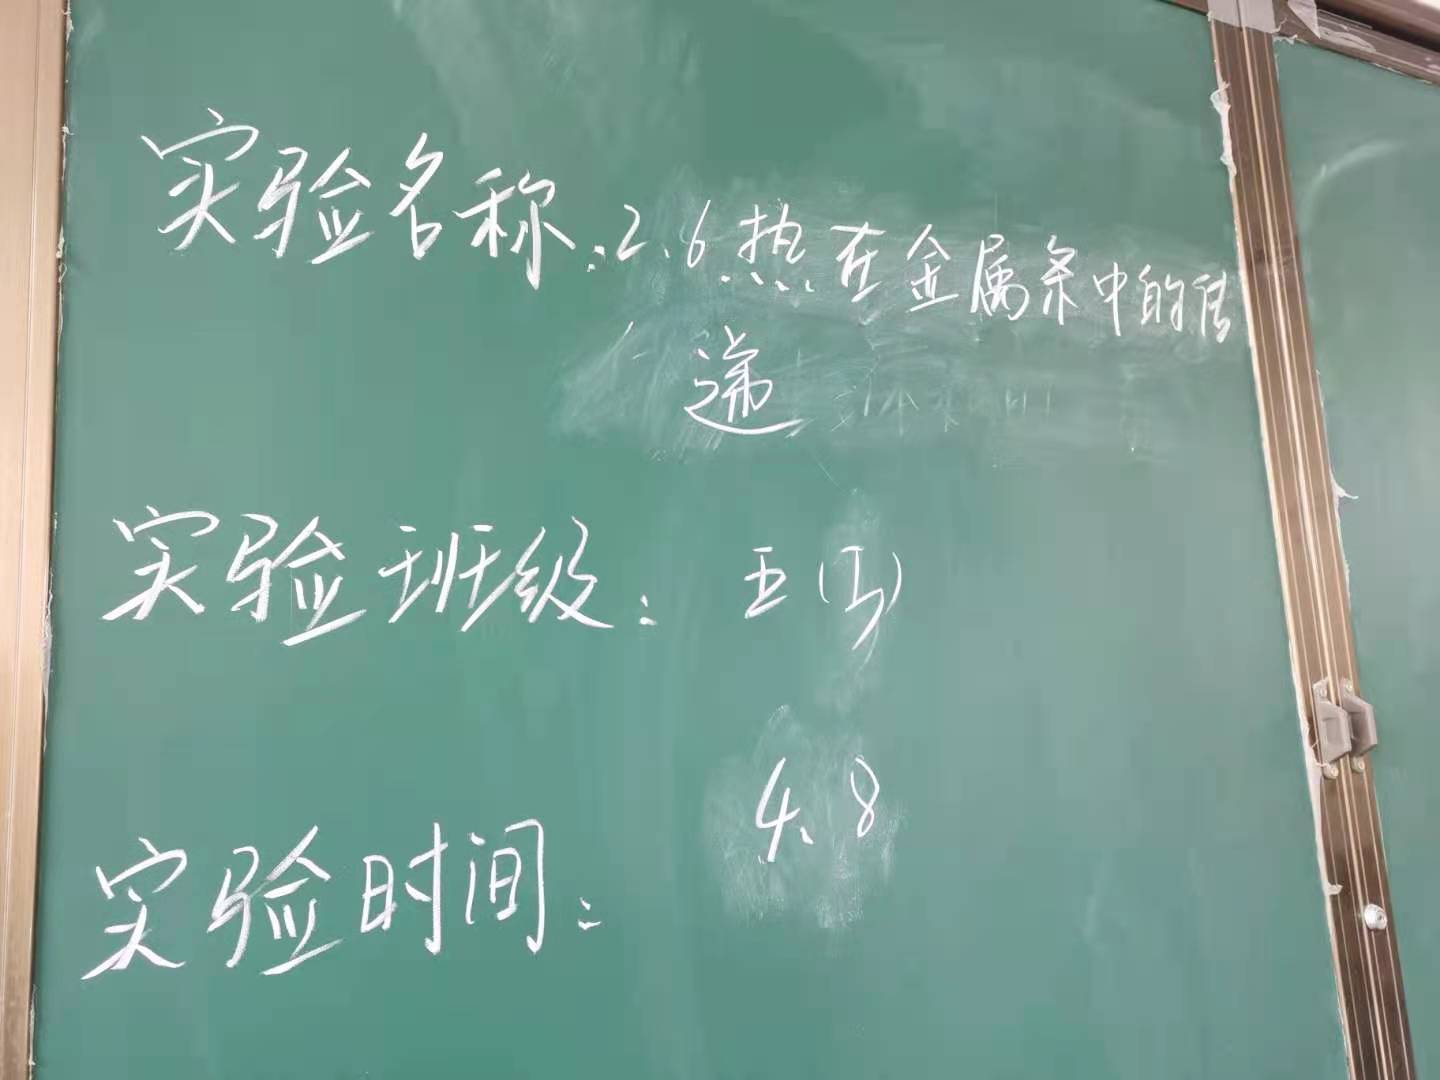 实验名称:2.6热在金属条中的传
递
实验班级: 五(5)
实验时间: 4.8